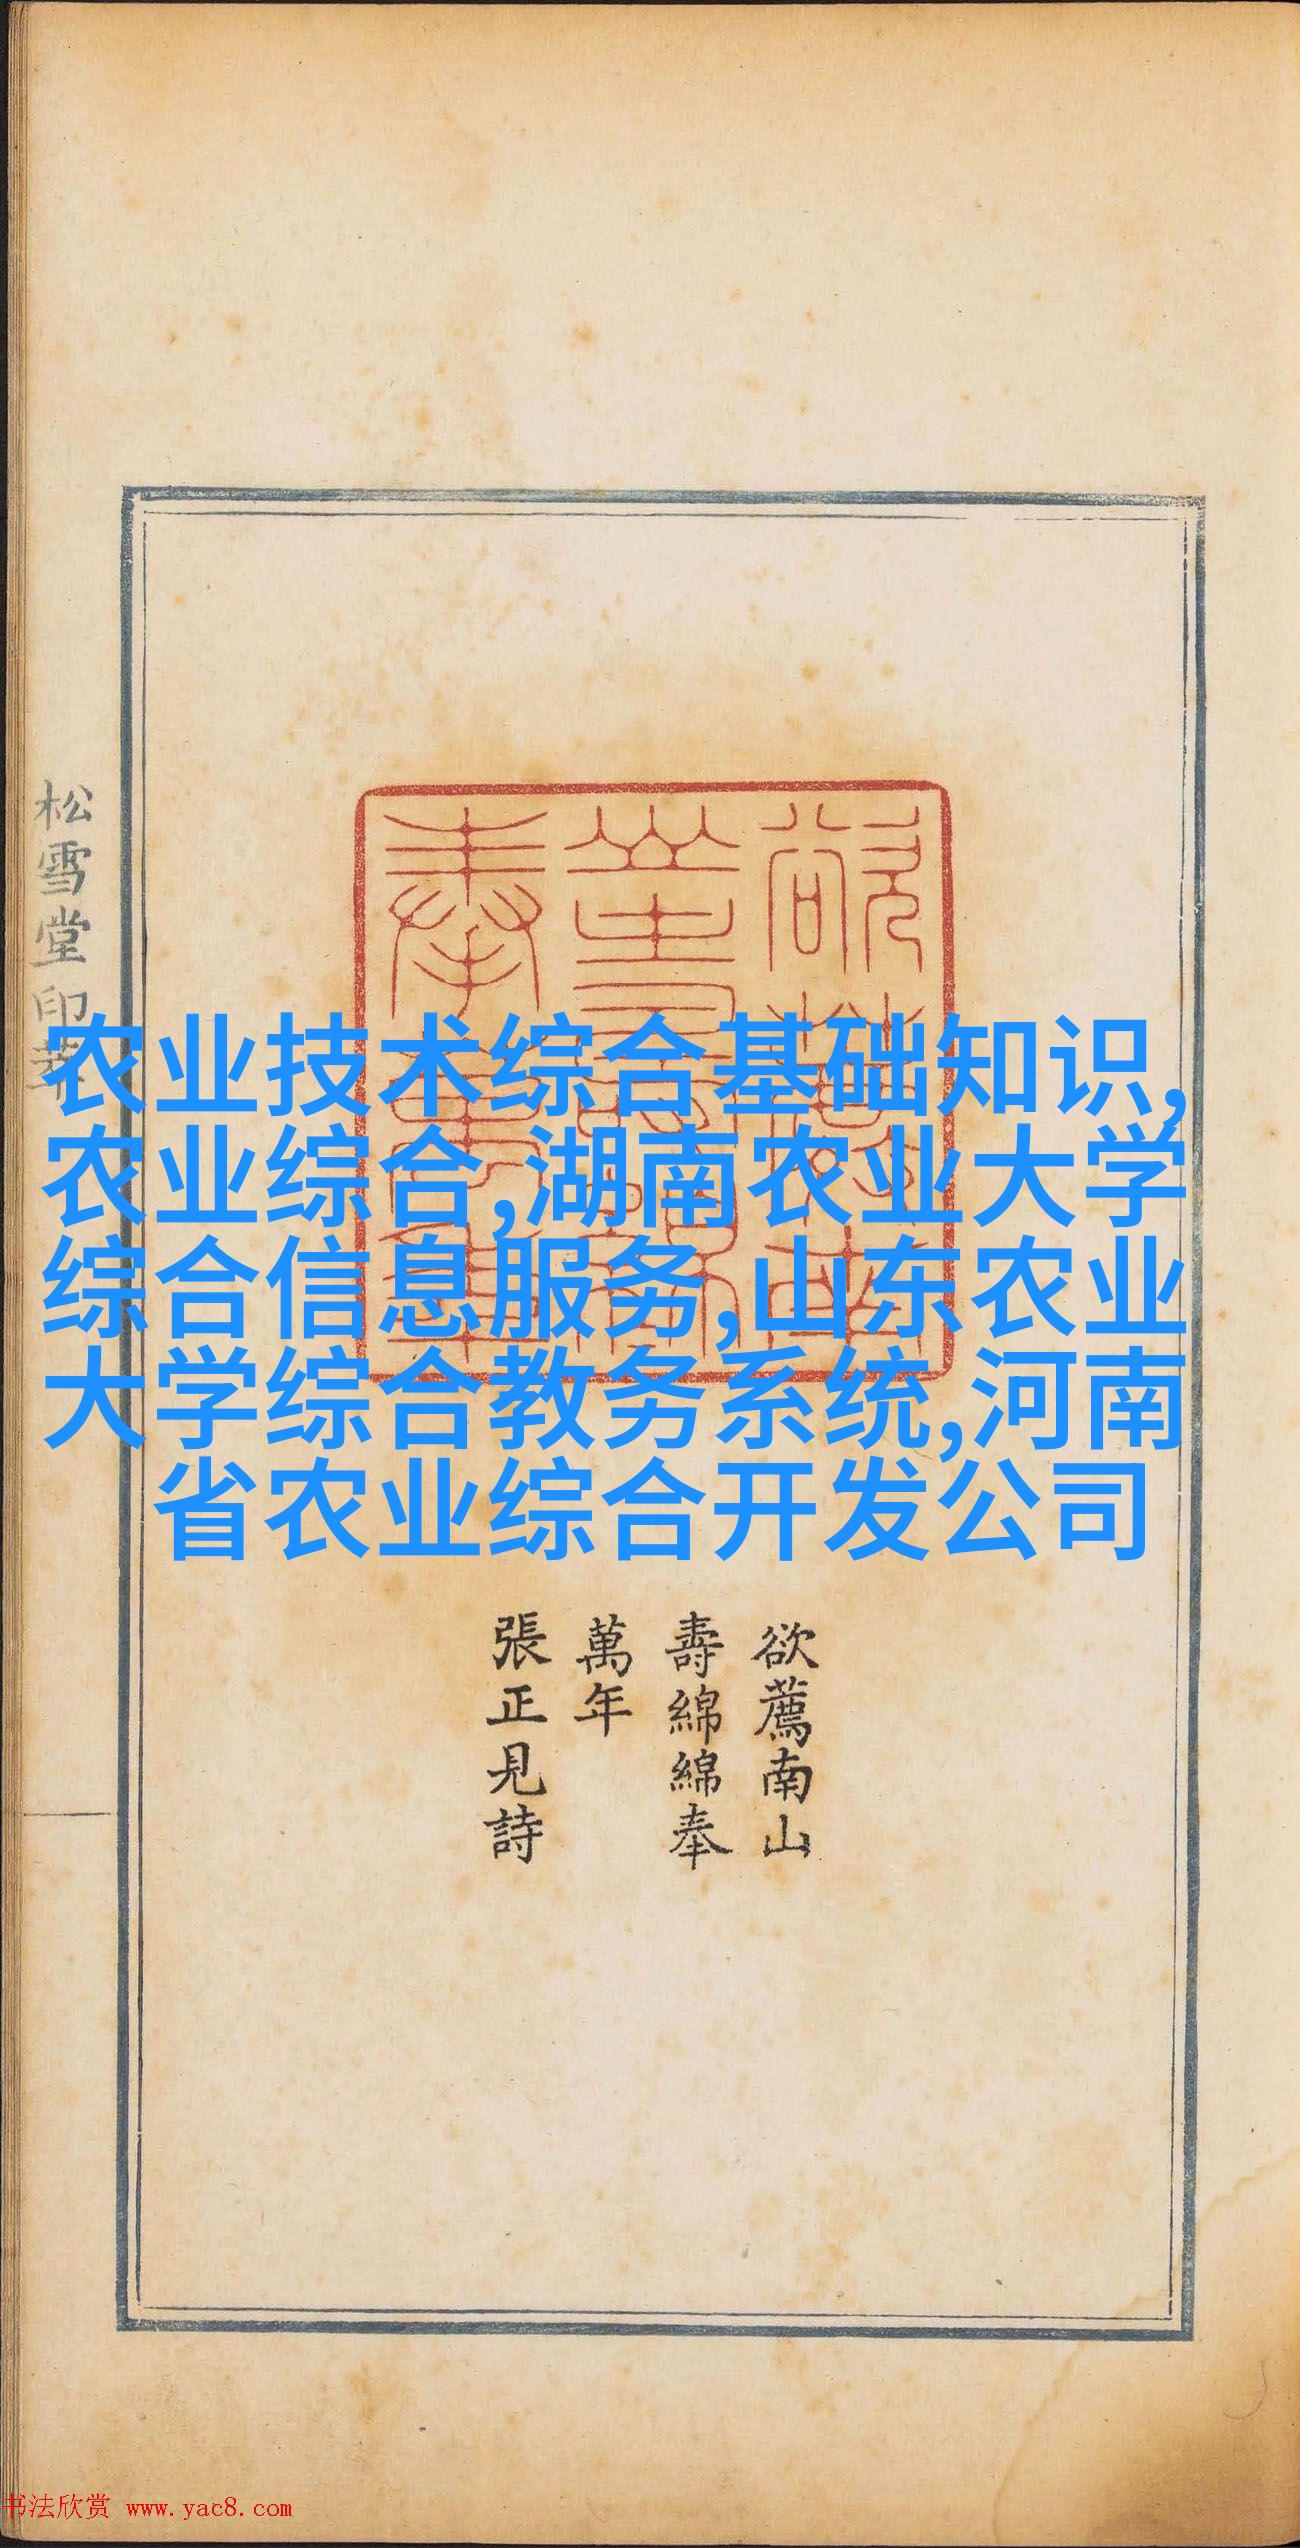 农业技术综合基础知识,
农业综合,湖南农业大学
综合信息服务,山东农业
大学综合教务系统,河南
省农业综合开发公司
欲薦南山
壽綿綿奉
萬年
張正見詩
松雪堂印萃
书法欣赏 www.yac8.com